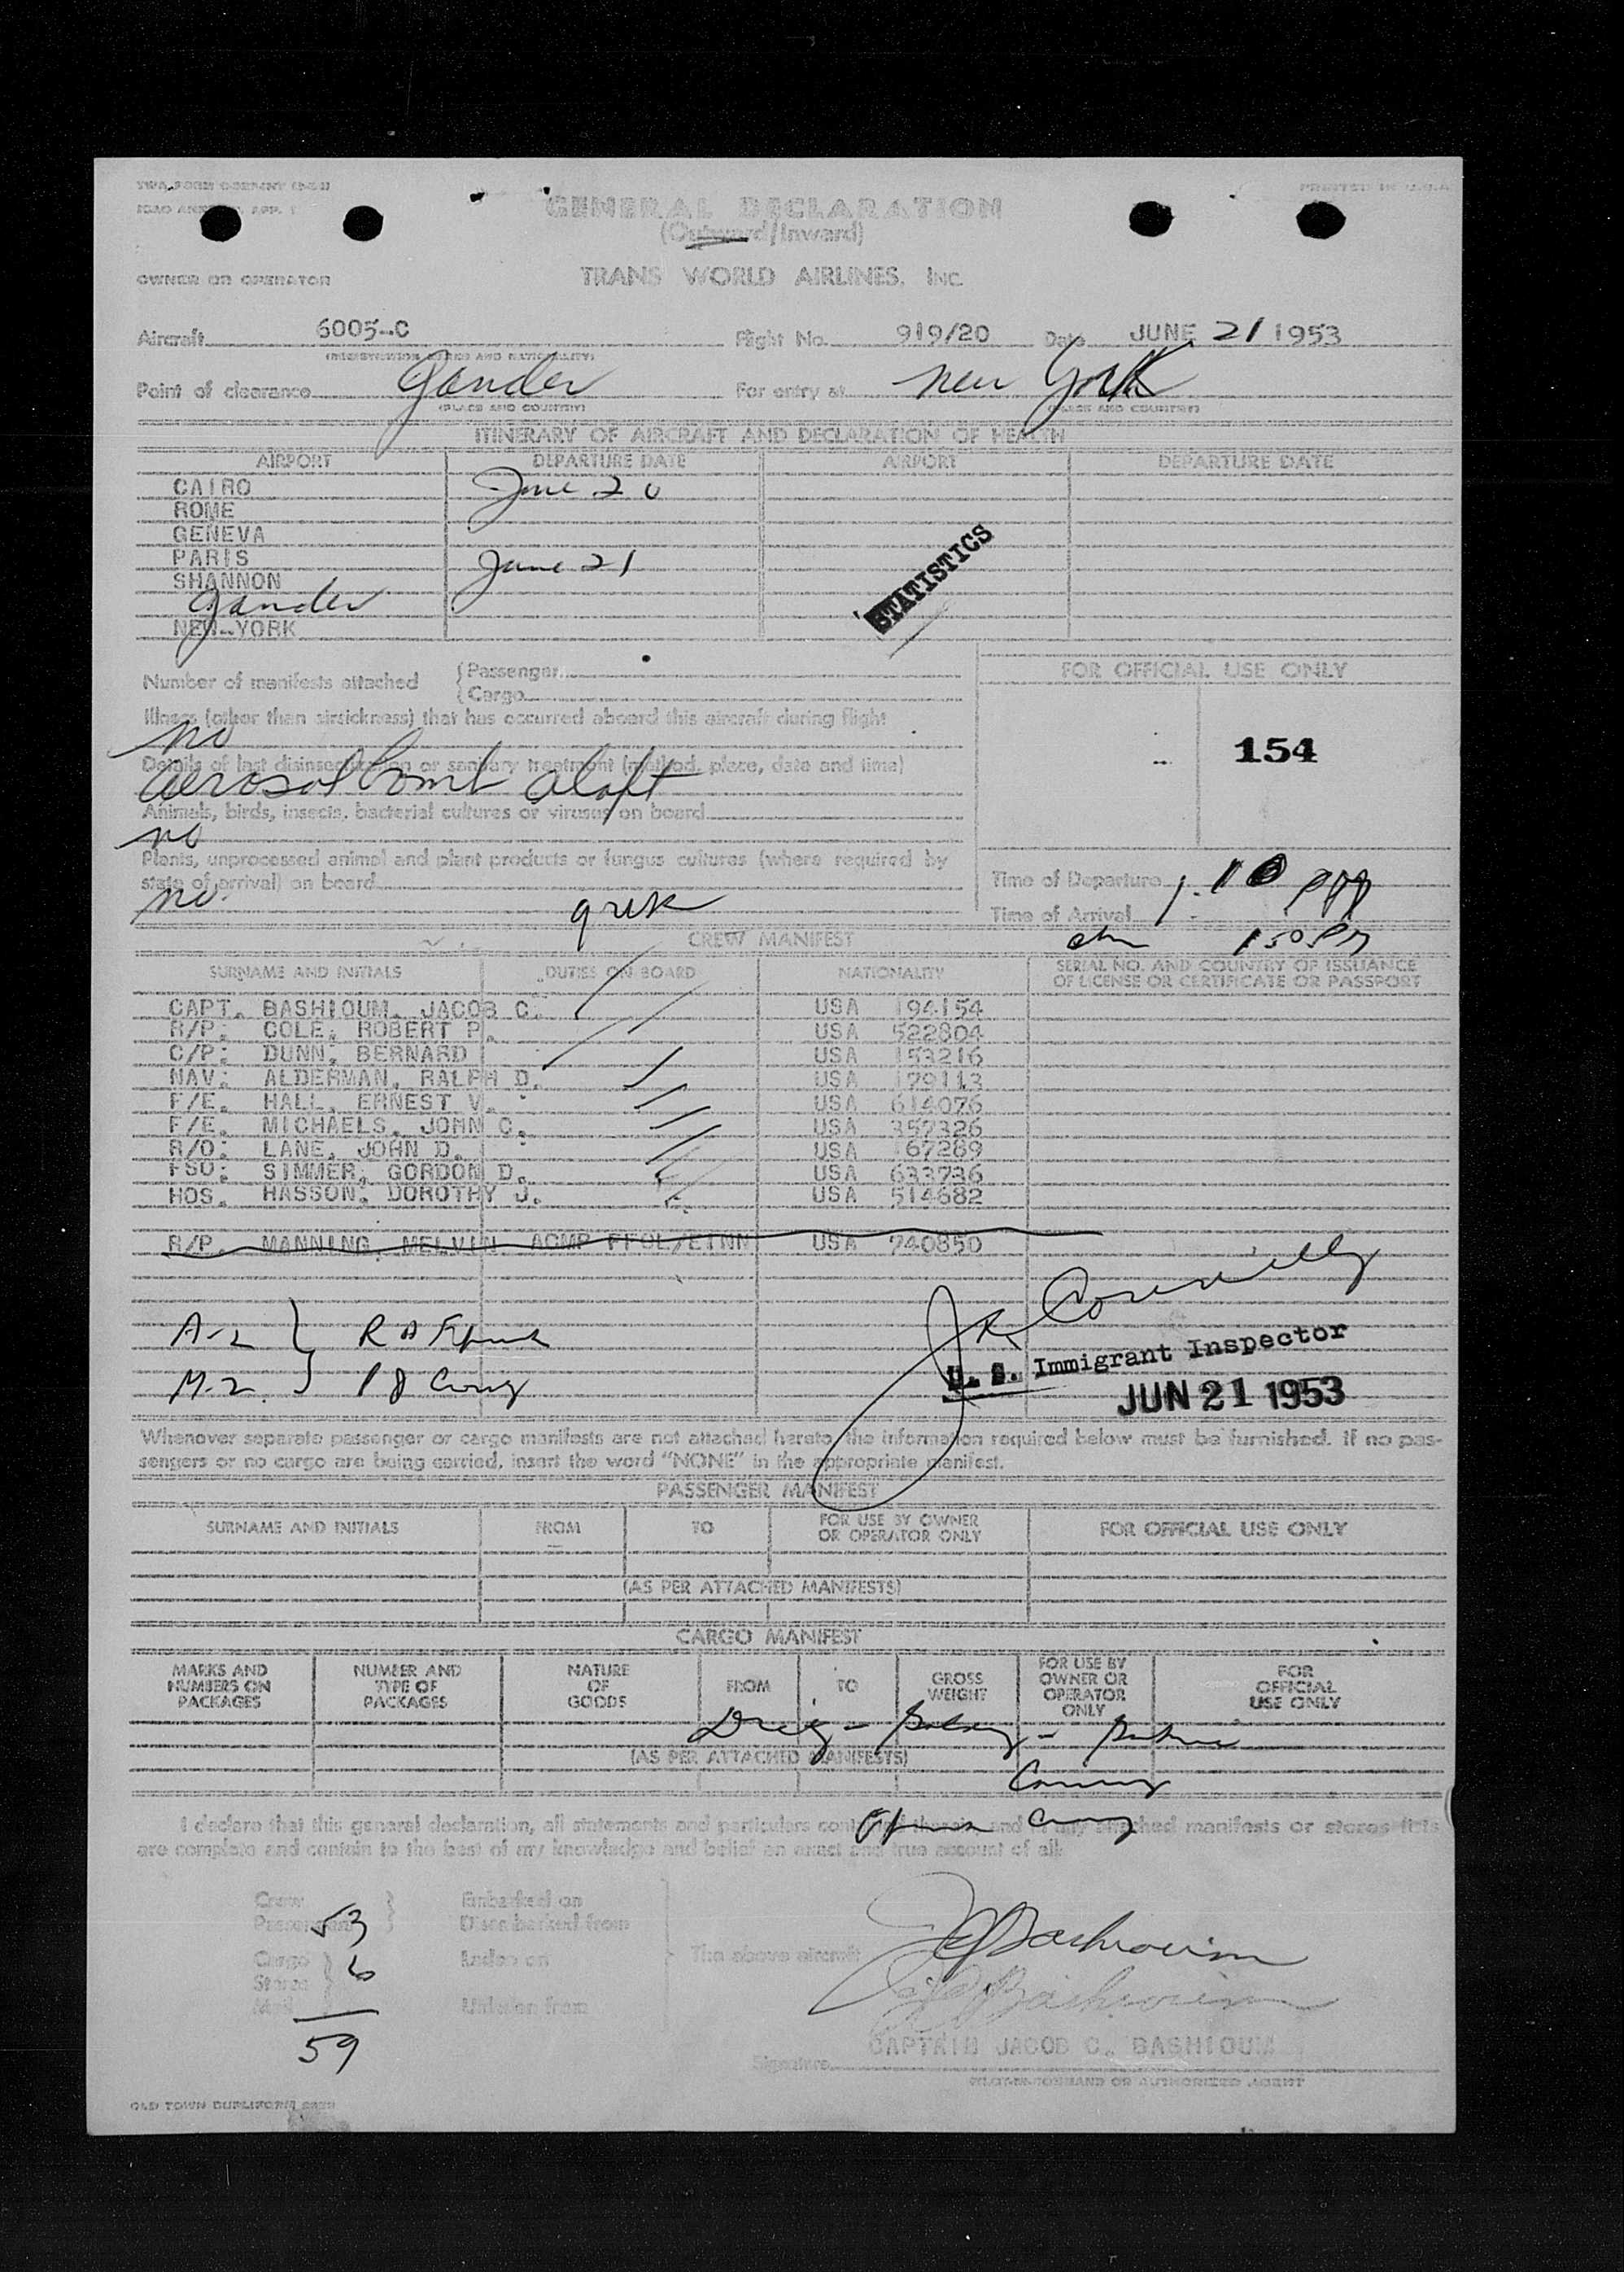 PRINTED IN U.S.A
GENERAL DECLARATION
(Outward/Inward)
OWNER OR OPERATOR TRANS WORLD AIRLINES, INC.
Aircraft 6005-C Flight No. 919/20 Date JUNE 21 1953
Point of clearance Gander For entry at New York
(PLACE AND COUNTRY) (PLACE AND COUNTRY)
ITINERARY OF AIRCRAFT AND DECLARATION OF HEALTH
AIRPORT DEPARTURE DATE AIRPORT DEPARTURE DATE
CAIRO June 20
ROME
GENEVA
PARIS June 21
SHANNON
Gander
NEW YORK
STATISTICS
Number of manifests attached { Passenger
{ Cargo
FOR OFFICIAL USE ONLY
154
Illness (other than airsickness) that has occurred aboard this aircraft during flight
no
Details of last disinsectization or sanitary treatment (method, place, date and time)
aerosol bomb aloft
Animals, birds, insects, bacterial cultures or viruses on board
no
Plants, unprocessed animal and plant products or fungus cultures (where required by
state of arrival) on board
no
Time of Departure 1:10 PM
Time of Arrival
150 PM
CREW MANIFEST
SURNAME AND INITIALS DUTIES ON BOARD NATIONALITY SERIAL NO. AND COUNTRY OF ISSUANCE
OF LICENSE OR CERTIFICATE OR PASSPORT
CAPT. BASHIOUM, JACOB C. USA 194154
R/P: COLE, ROBERT P. USA 522804
C/P: DUNN, BERNARD USA 153216
NAV: ALDERMAN, RALPH D. USA 179113
F/E. HALL, ERNEST V. USA 614076
F/E. MICHAELS, JOHN C. USA 357326
R/O: LANE, JOHN D. USA 167289
FSO: SIMMER, GORDON D. USA 633736
HOS. HASSON, DOROTHY J. USA 514682
R/P. MANNING, MELVIN ACMP FFOL/EINN USA 740850
A-2 }
M-2 }
J R Connelly
U. S. Immigrant Inspector
JUN 21 1953
Whenever separate passenger or cargo manifests are not attached hereto, the information required below must be furnished. If no pas-
sengers or no cargo are being carried, insert the word "NONE" in the appropriate manifest.
PASSENGER MANIFEST
SURNAME AND INITIALS FROM TO FOR USE BY OWNER
OR OPERATOR ONLY FOR OFFICIAL USE ONLY
(AS PER ATTACHED MANIFESTS)
CARGO MANIFEST
MARKS AND
NUMBERS ON
PACKAGES NUMBER AND
TYPE OF
PACKAGES NATURE
OF
GOODS FROM TO GROSS
WEIGHT FOR USE BY
OWNER OR
OPERATOR
ONLY FOR
OFFICIAL
USE ONLY
(AS PER ATTACHED MANIFESTS)
I declare that this general declaration, all statements and particulars contained therein and in any attached manifests or stores lists
are complete and contain to the best of my knowledge and belief an exact and true account of all:
Crew } Embarked on
Passengers 53 } Disembarked from
Cargo } 6 Laden on The above aircraft
Stores }
Mail Unladen from
59
J C Bashioum
J C Bashioum
CAPTAIN JACOB C. BASHIOUM
Signature
PILOT-IN-COMMAND OR AUTHORIZED AGENT